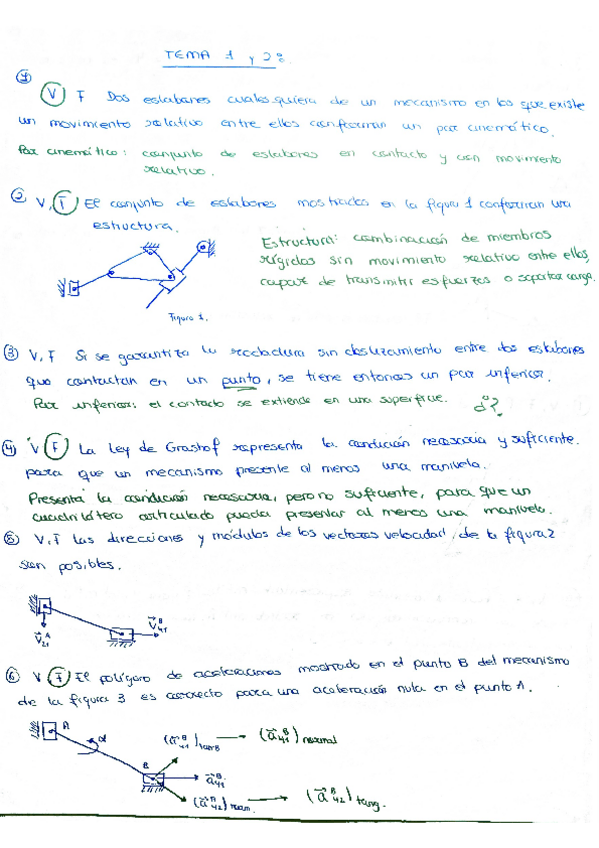 TEMA 1 y 2:
①
V F Dos eslabones cualesquiera de un mecanismo en los que existe
un movimiento relativo entre ellos conforman un par cinemático.
Par cinemático: conjunto de eslabones en contacto y con movimiento
relativo.
② V, F El conjunto de eslabones mostrados en la figura 1 conforman una
estructura.
Estructura: combinación de miembros
rígidos sin movimiento relativo entre ellos,
capaz de transmitir esfuerzos o soportar carga.
Figura 1.
③ V, F Si se garantiza la rodadura sin deslizamiento entre dos eslabones
que contactan en un punto, se tiene entonces un par inferior.
Par inferior: el contacto se extiende en una superficie.
④ V F La Ley de Grashof representa la condición necesaria y suficiente
para que un mecanismo presente al menos una manivela.
Presenta la condición necesaria, pero no suficiente, para que un
cuadrilátero articulado pueda presentar al menos una manivela.
⑤ V, F Las direcciones y módulos de los vectores velocidad, de la figura 2
son posibles.
V A 21
V B 41
⑥ V F El polígono de aceleraciones mostrado en el punto B del mecanismo
de la figura 3 es correcto para una aceleración nula en el punto A.
A
α
B
(a B 41) → (a B 41) normal
a B 41
→ (a B 42) tang.